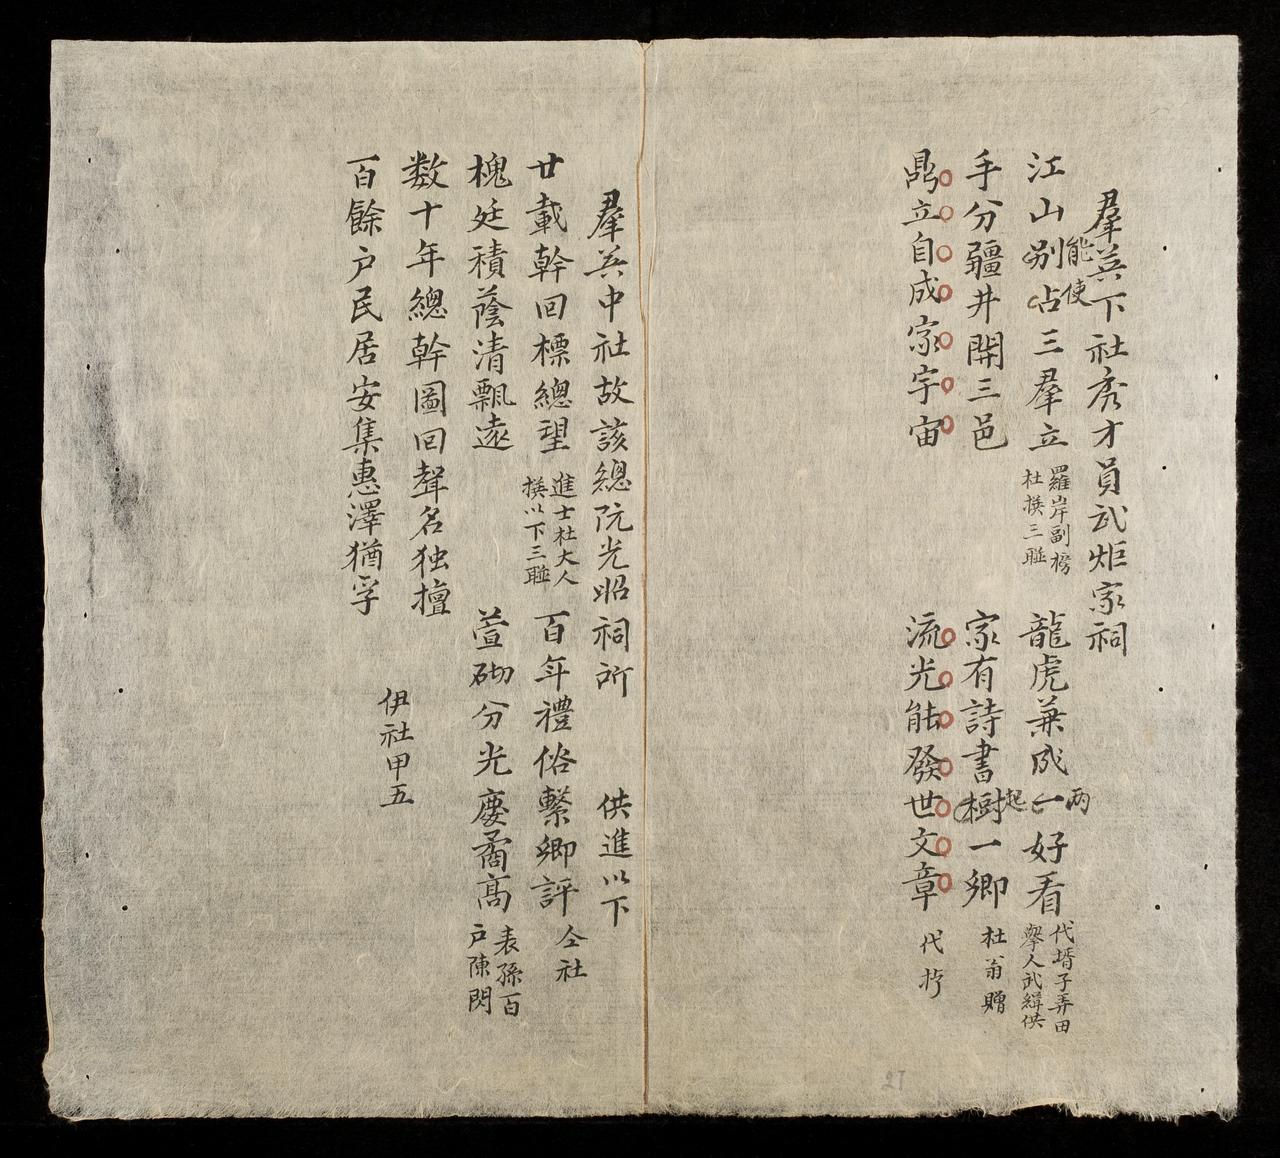 羣英下社秀才員武炬家祠
江山别占三羣立 羅岸副榜杜撰三聯 龍虎兼成一好看 代壻子弄田舉人武緝供
能使
两
手分疆井開三邑 家有詩書樹一卿 杜翁贈
起
鼎立自成家宇宙 流光能發世文章 代抄
羣英中社故該總阮光昭祠所 供進以下
廿載幹回標總望 進士杜大人撰以下三聯 百年禮俗繫卿評 仝社
槐廷積蔭清飄遠 萱砌分光慶霱高 表孫百戶陳閃
数十年總幹圖回聲名独擅
百餘戶民居安集惠澤猶孚
伊社甲五